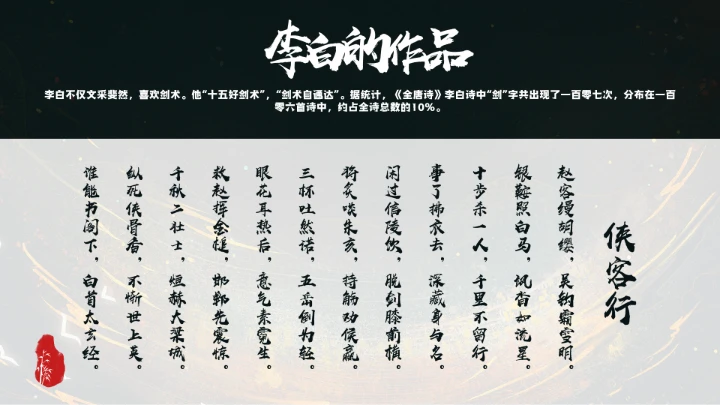 李白的作品
李白不仅文采斐然，喜欢剑术。他“十五好剑术”，“剑术自通达”。据统计，《全唐诗》李白诗中“剑”字共出现了一百零七次，分布在一百
零六首诗中，约占全诗总数的10%。
侠客行
赵客缦胡缨，吴钩霜雪明。
银鞍照白马，飒沓如流星。
十步杀一人，千里不留行。
事了拂衣去，深藏身与名。
闲过信陵饮，脱剑膝前横。
将炙啖朱亥，持觞劝侯嬴。
三杯吐然诺，五岳倒为轻。
眼花耳热后，意气素霓生。
救赵挥金槌，邯郸先震惊。
千秋二壮士，烜赫大梁城。
纵死侠骨香，不惭世上英。
谁能书阁下，白首太玄经。